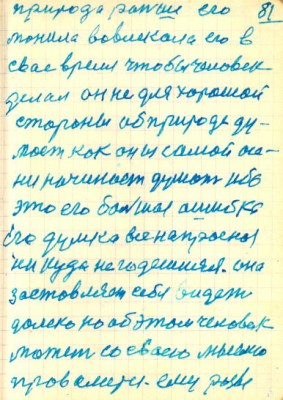 природа ражии его 81
монила вовлекала его в
свае время чтобы человек
делал он не для хорошой
стороны об природе ду-
моет как он и самой она-
ни начинает думат ибо
это его большая ошибка
Его думка все напрасная
никуда негодешияся. она
заставляет себя видет
далеко но об этом человек
может со своею мыслию
провалится. ему